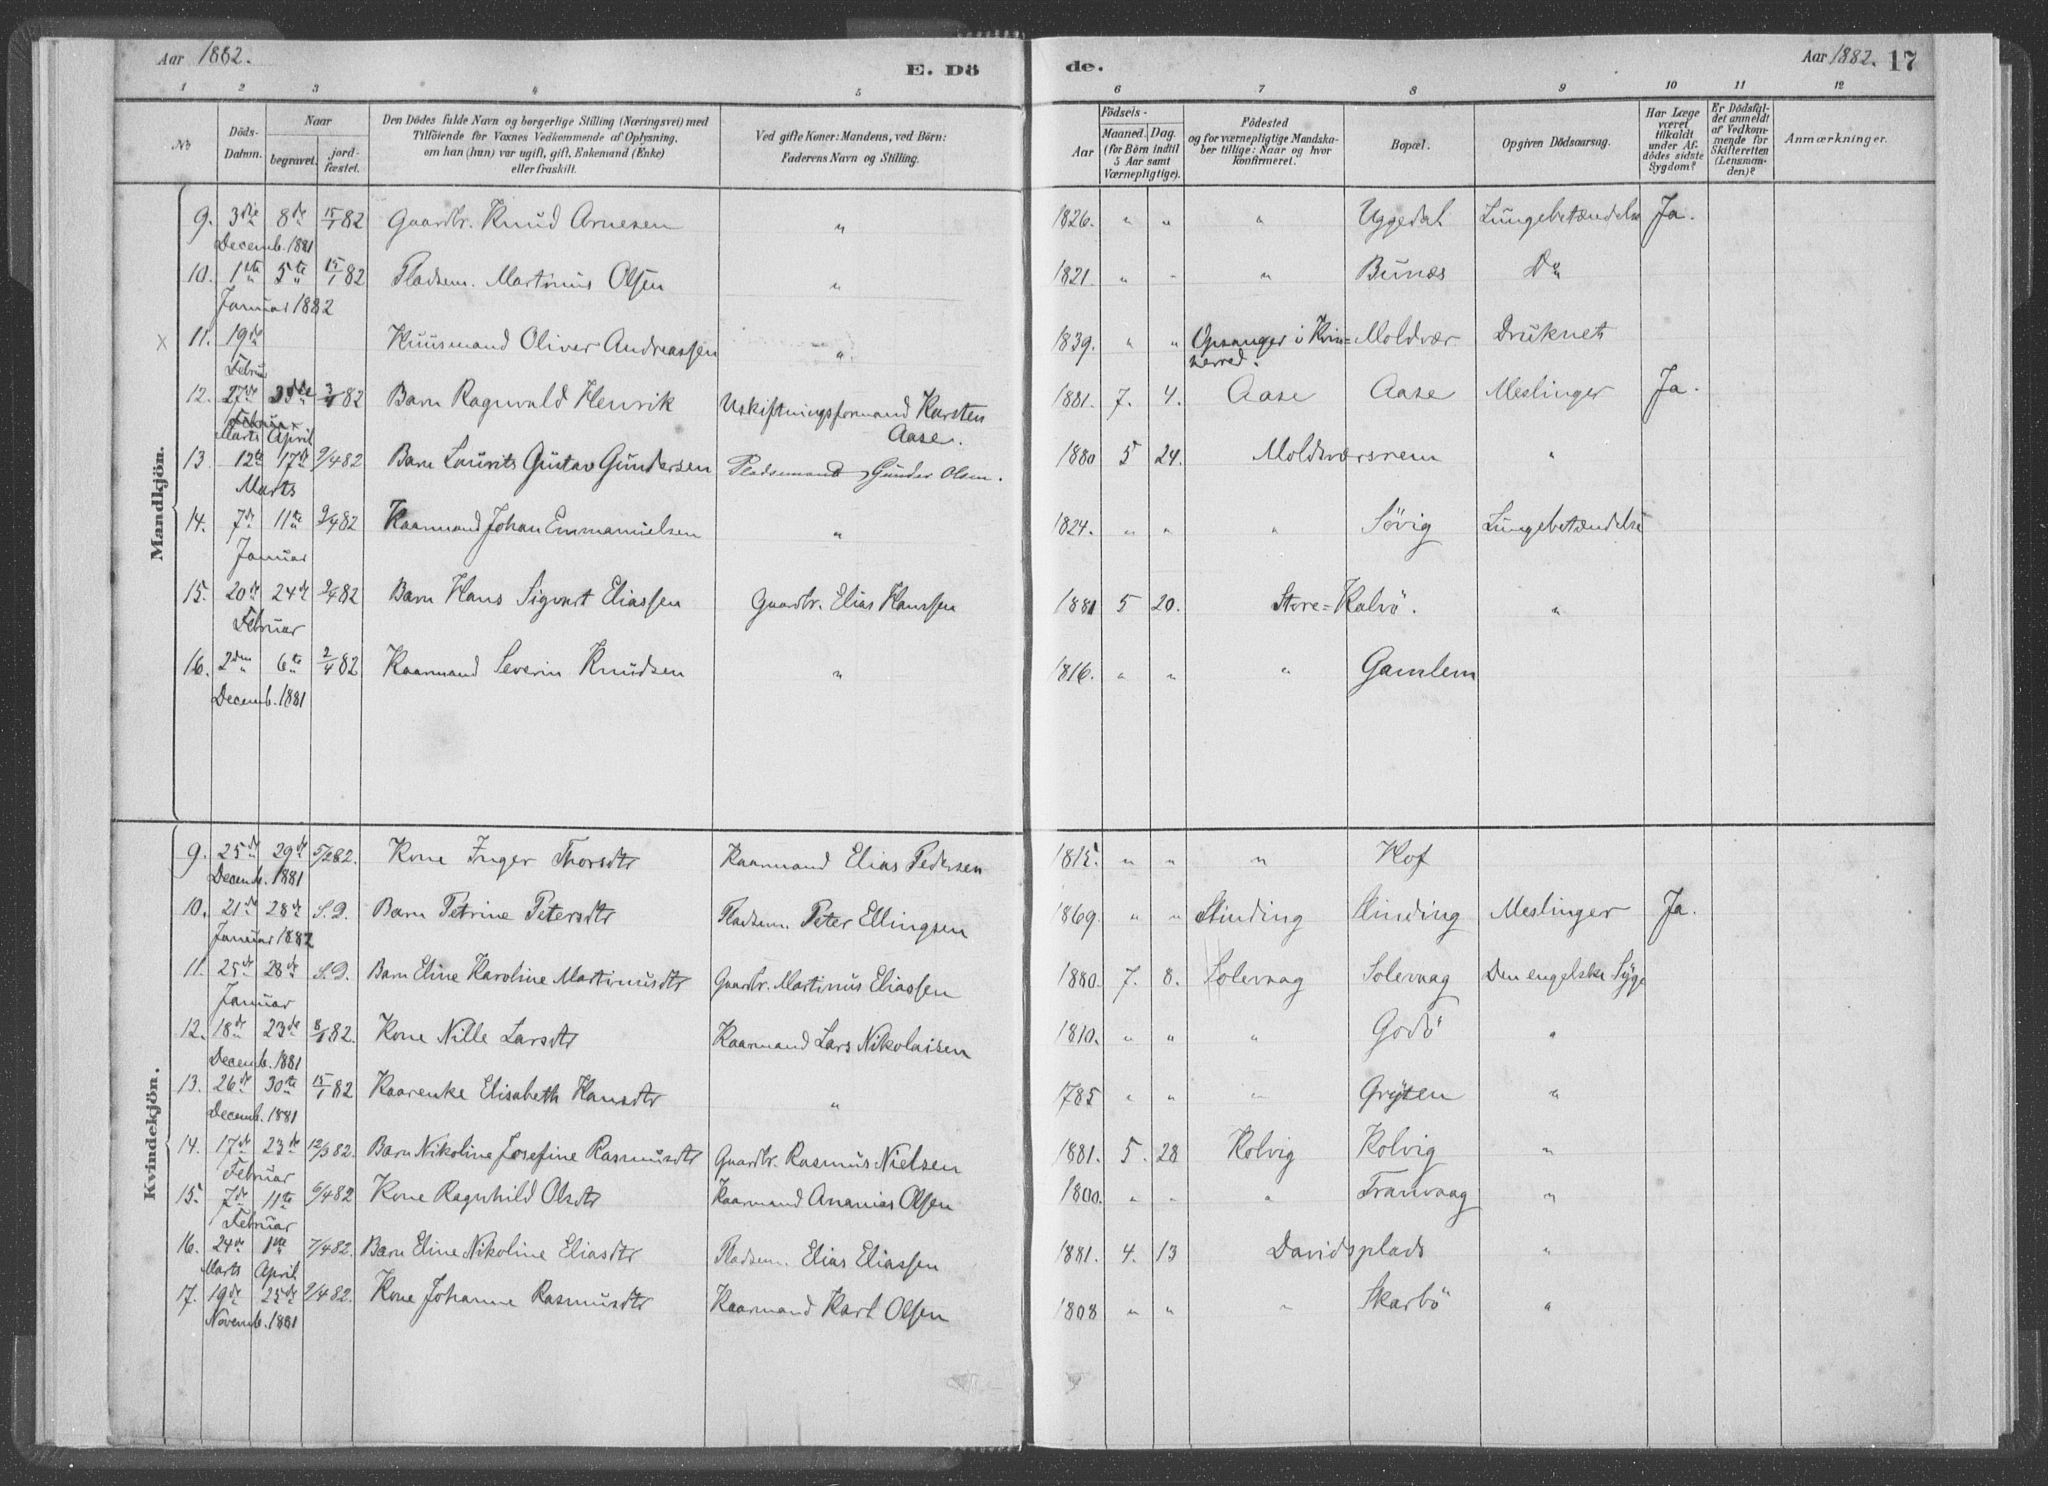 Aar 1882.
E. Dö
de.
Aar 1882. 17
1 2 3 4 5 6 7 8 9 10 11 12
No
Döds-Datum.
Naar
begravet.
jord-fæstet.
Den Dödes fulde Navn og borgerlige Stilling (Næringsvei) med
Tilföiende for Voxnes Vedkommende af Oplysning,
om han (hun) var ugift, gift, Enkemand (Enke)
eller fraskilt.
Ved gifte Koner: Mandens, ved Börn:
Faderens Navn og Stilling.
Födsels-
Aar
Maaned. Dag.
(for Börn indtil
5 Aar samt
Værnepligtige).
Födested
og for værnepligtige Mandska-
ber tillige: Naar og hvor
konfirmeret.
Bopæl.
Opgiven Dödsaarsag.
Har Læge
været
tilkaldt
under Af-
dödes sidste
Sygdom?
Er Dödsfal-
det anmeldt
af Vedkom-
mende for
Skifteretten
(Lensman-
den)?
Anmærkninger.
Mandkjön.
9. 3die 8de 15/1 82 Gaardbr. Knud Arnesen " 1826. " " " Uggedal Lungebetændelse Ja.
Decemb. 1881
10. 1ste 5te 15/1 82 Pladsem. Martinus Olsen " 1821. " " " Bunæs Do
Januar 1882
X 11. 19de Huusmand Oliver Andreassen " 1839. " " Opsanger i Kvin= Moldvær Druknet
herred.
Februar
12. 27de 3/4 82 Barn Ragnvald Henrik Udskiftningsformand Karsten 1881. 7. 4. Aase Aase Meslinger Ja.
Aase.
Februar
Marts April
13 12te 17de 2/4 82 Barn Laurits Gustav Gundersen Pladsemand Gunder Olsen. 1880 5 24. Moldværsrem "
Marts
14. 7de 11te 2/4 82 Kaarmand Johan Emmanuelsen " 1824. " " " Sövig Lungebetændelse
Januar
15. 20de 24de 2/4 82 Barn Hans Sigvart Eliassen Gaardbr. Elias Hanssen 1881 5 20. Store=Kalvö. "
Februar
16. 2den 6te 2/4 82 Kaarmand Severin Knudsen " 1816. " " " Gamlem
Decemb. 1881
Kvindekjön.
9. 25de 29de 5/2 82. Kone Inger Thorsdtr Kaarmand Elias Pedersen 1815. " " " Hof
Decemb. 1881
10. 21de 28de S.D. Barn Petrine Petersdtr Pladsem. Peter Ellingsen 1869. " " Slinding Slinding Meslinger Ja.
Januar 1882
11. 25de 28de S.D. Barn Eline Karoline Martinusdtr Gaardbr. Martinus Eliassen 1880. 7. 8. Solevaag Solevaag Den engelske Syge
Januar
12. 18de 23de 8/1 82. Kone Nille Larsdtr Kaarmand Lars Nikolaisen 1810. " " " Godö "
Decemb. 1881
13. 26de 30te 15/1 82 Kaarenke Elisabeth Hansdtr " 1785 " " " Gryten "
Decemb. 1881
14. 17de 23de 12/3 82. Barn Nikoline Josefine Rasmusdtr Gaardbr. Rasmus Nielsen 1881. 5. 28 Kolvig Kolvig "
Februar
15. 7de 11te 6/4 82 Kone Ragnhild Olsdtr Kaarmand Ananias Olsen 1800. " " " Tranvaag "
Februar
16. 24de 1ste 7/4 82. Barn Eline Nikoline Eliasdtr Pladsem. Elias Eliassen 1881. 4. 13 Davidsplads "
Marts April
17. 19de 25de 9/4 82. Kone Johanne Rasmusdtr Kaarmand Karl Olsen 1808 " " " Skarbö "
Novemb. 1881